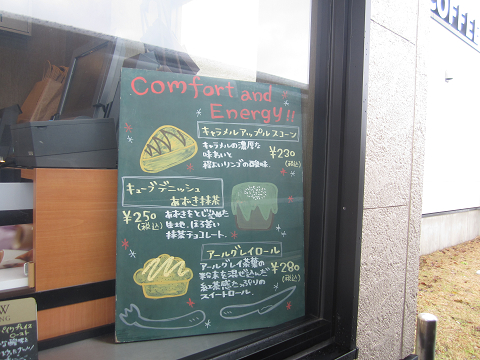 COFFEE
Comfort and
Energy!!
キャラメルアップルスコーン
キャラメルの濃厚な
味わいと
程よいリンゴの酸味.
¥230
(税込)
キューブデニッシュ
あずき抹茶
¥250
(税込)
あずきをとじ込めた
生地、ほろ苦い
抹茶チョコレート.
アールグレイロール
アールグレイ茶葉の
粉末を混ぜ込んだ
紅茶感たっぷりの
スイートロール.
¥280
(税込)